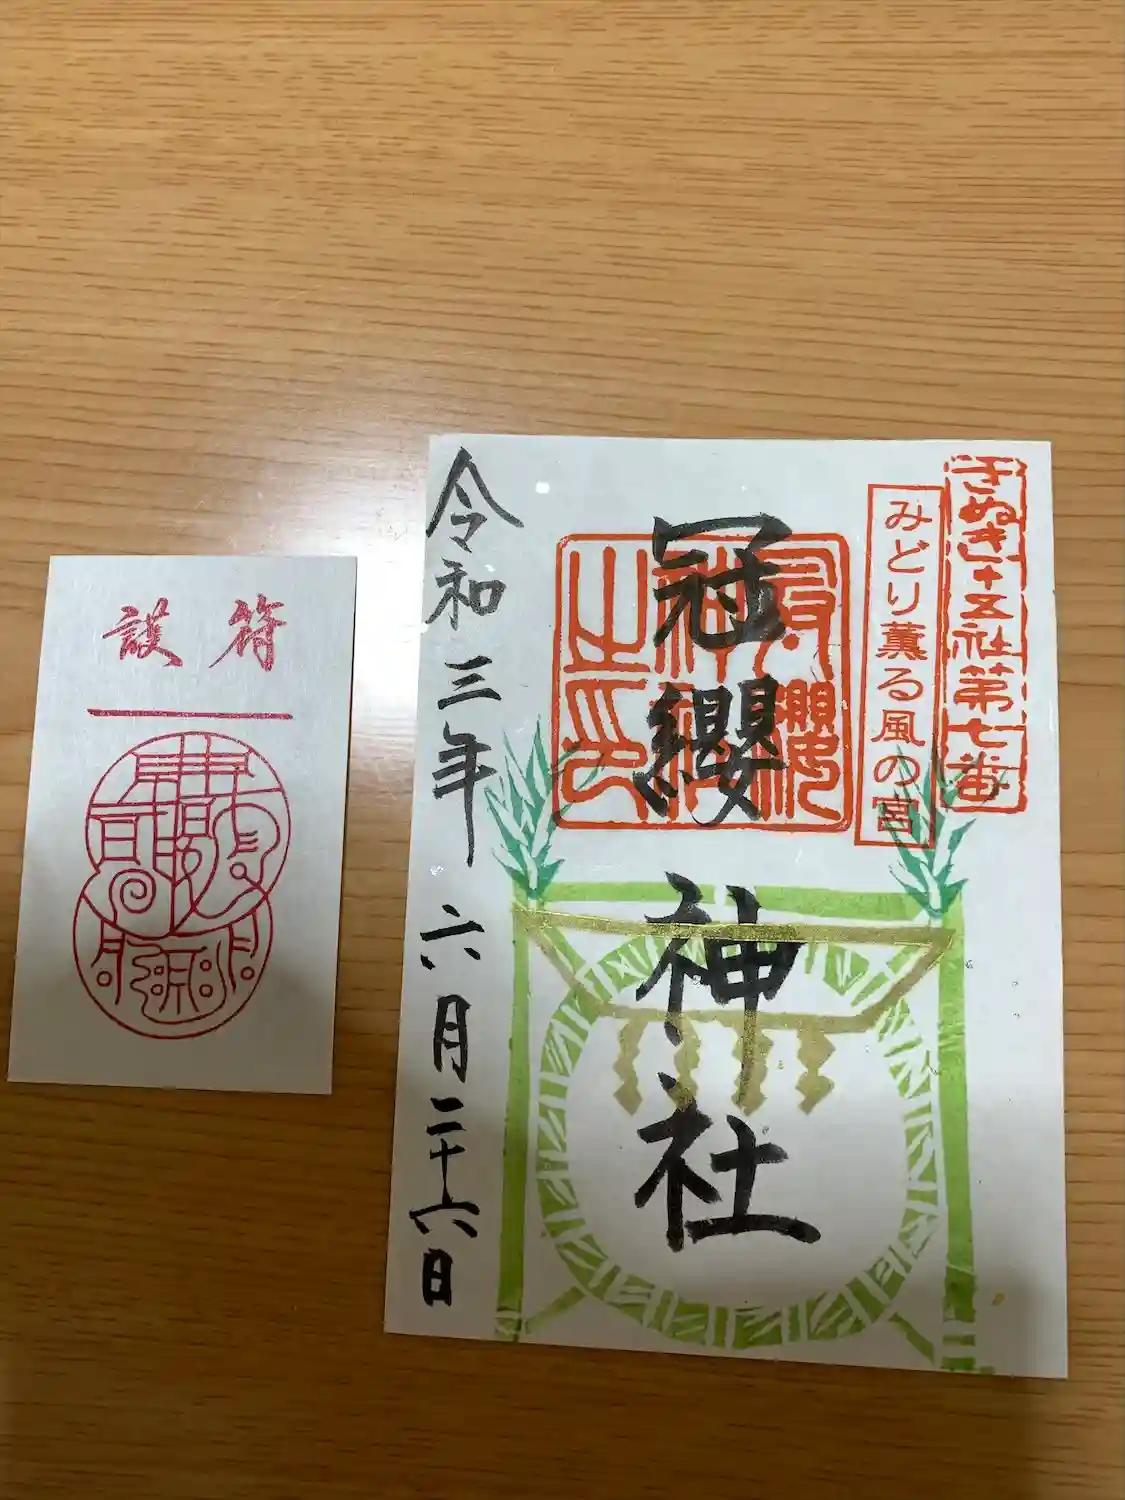 さぬき十五社第七番
みどり薫る風の宮
冠纓神社
冠纓神社之印
令和三年六月二十六日
護符